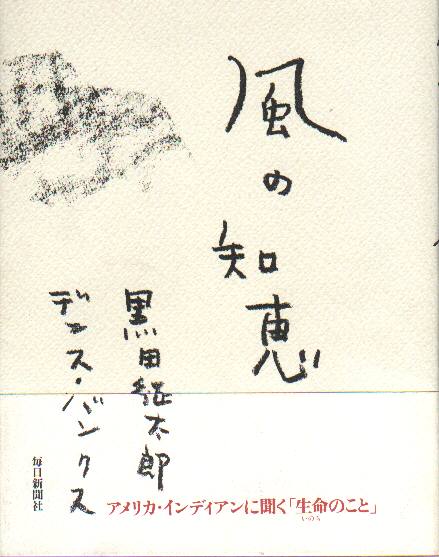 風の知恵
黒田征太郎
デニス・バンクス
毎日新聞社
アメリカ・インディアンに聞く「生命のこと」
いのち